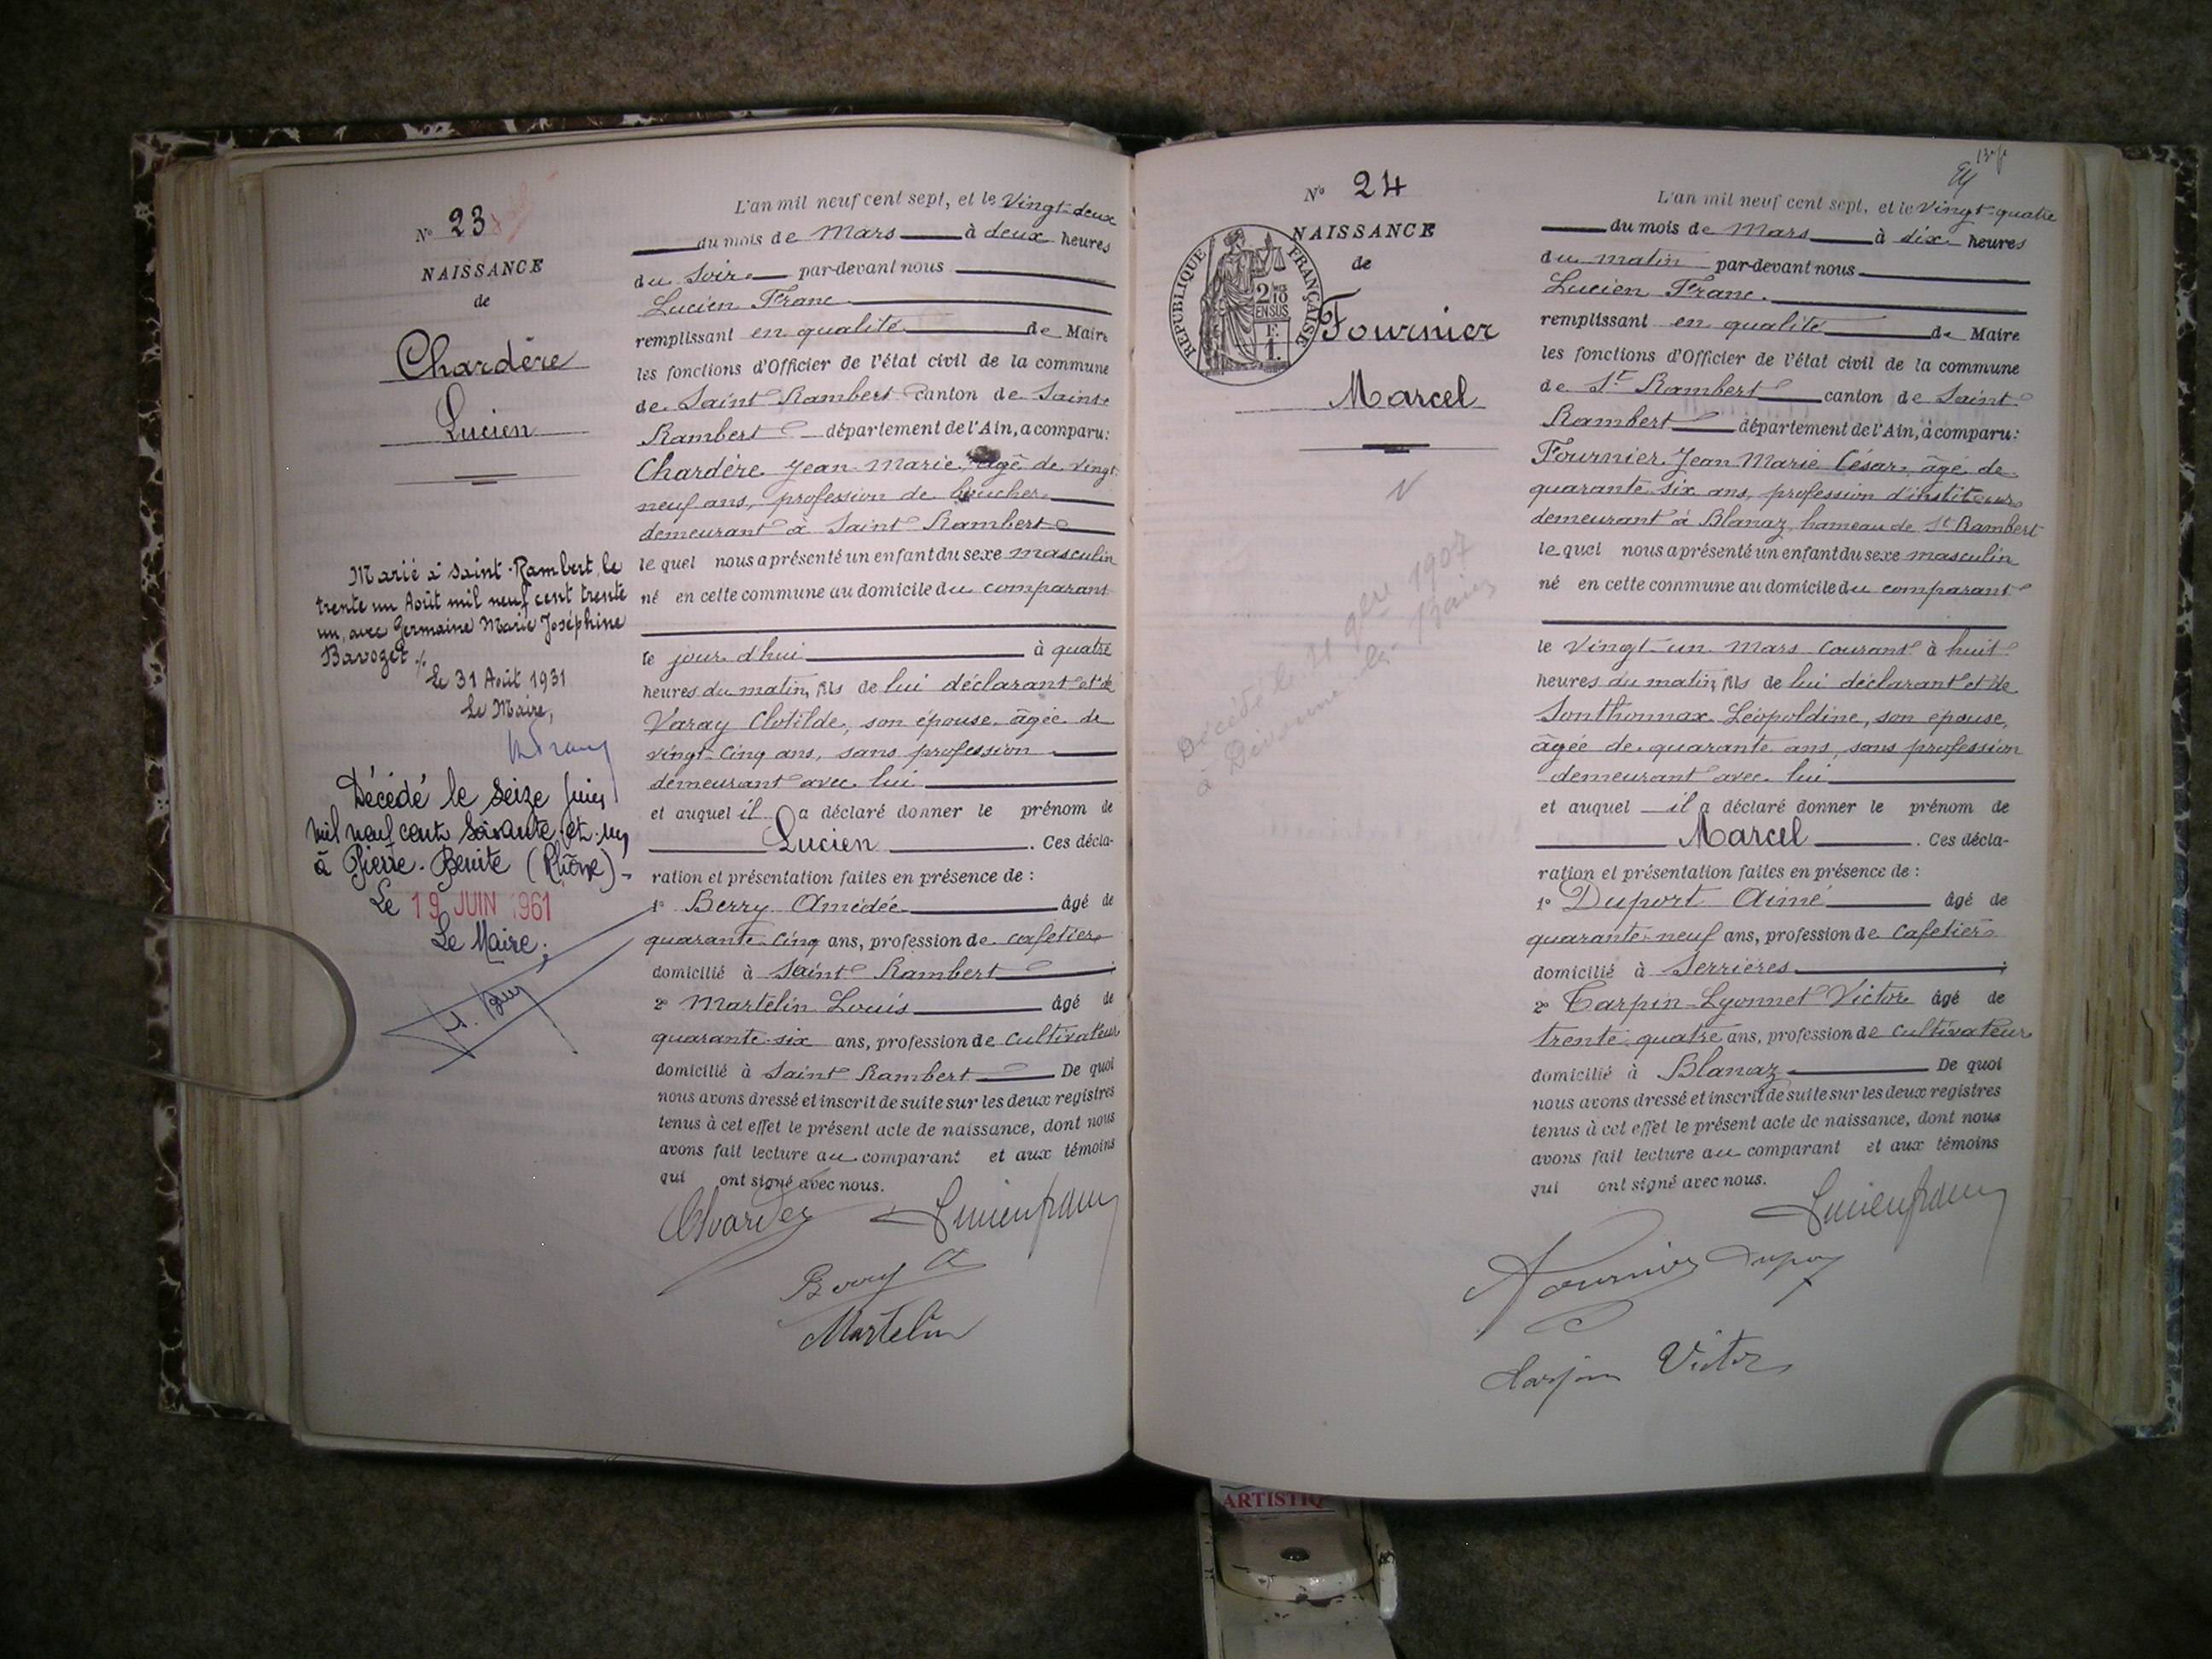 N° 23
NAISSANCE
de
Chardère
Lucien
Marié à Saint-Rambert, le
trente un Août mil neuf cent trente
un, avec Germaine Marie Joséphine
Bavozet ./.
Le 31 Août 1931
Le Maire,
Décédé le seize juin
mil neuf cent soixante-et-un
à Pierre-Bénite (Rhône) -
Le 19 JUIN 1961
Le Maire:
L'an mil neuf cent sept, et le Vingt-deux
du mois de Mars à deux heures
du Soir par-devant nous
Lucien Franc
remplissant en qualité de Maire
les fonctions d'Officier de l'état civil de la commune
de Saint Rambert canton de Saint
Rambert département de l'Ain, a comparu:
Chardère Jean-Marie, âgé de vingt
neuf ans, profession de boucher
demeurant à Saint Rambert
le quel nous a présenté un enfant du sexe masculin
né en cette commune au domicile du comparant
le jour d'hui à quatre
heures du matin, fils de lui déclarant et de
Varay Clotilde, son épouse âgée de
vingt-cinq ans, sans profession
demeurant avec lui
et auquel il a déclaré donner le prénom de
Lucien. Ces décla-
ration et présentation faites en présence de :
1° Berry Amédée âgé de
quarante-cinq ans, profession de cafetier
domicilié à Saint Rambert ;
2° Martelin Louis âgé de
quarante-six ans, profession de cultivateur
domicilié à Saint Rambert De quoi
nous avons dressé et inscrit de suite sur les deux registres
tenus à cet effet le présent acte de naissance, dont nous
avons fait lecture au comparant et aux témoins
qui ont signé avec nous.
Lucien Franc
Berry A
Martelin
N° 24
NAISSANCE
de
RÉPUBLIQUE FRANÇAISE
2/10
EN SUS
Fournier
Marcel
Décédé le 21 9bre 1907
à Divonne-les-Bains
L'an mil neuf cent sept, et le Vingt-quatre
du mois de Mars à dix heures
du matin par-devant nous
Lucien Franc.
remplissant en qualité de Maire
les fonctions d'Officier de l'état civil de la commune
de St Rambert canton de Saint
Rambert département de l'Ain, a comparu:
Fournier Jean Marie César, âgé de
quarante-six ans, profession d'instituteur
demeurant à Blanaz, hameau de St Rambert
le quel nous a présenté un enfant du sexe masculin
né en cette commune au domicile du comparant
le vingt-un Mars courant à huit
heures du matin, fils de lui déclarant et de
Sonthonnax Léopoldine, son épouse,
âgée de quarante ans, sans profession
demeurant avec lui
et auquel il a déclaré donner le prénom de
Marcel. Ces décla-
ration et présentation faites en présence de :
1° Duport Aimé âgé de
quarante-neuf ans, profession de cafetier
domicilié à Serrières ;
2° Tarpin-Lyonnet Victor âgé de
trente-quatre ans, profession de cultivateur
domicilié à Blanaz De quoi
nous avons dressé et inscrit de suite sur les deux registres
tenus à cet effet le présent acte de naissance, dont nous
avons fait lecture au comparant et aux témoins
qui ont signé avec nous.
Lucien Franc
Fournier
Tarpin Victor
ARTISTIQ